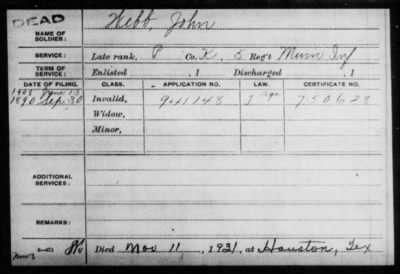 DEAD
NAME OF SOLDIER: Webb, John
SERVICE: Late rank, P Co. K, 5 Reg't Minn Inf
TERM OF SERVICE: Enlisted , 1 Discharged , 1
DATE OF FILING. CLASS. APPLICATION NO. LAW. CERTIFICATE NO.
1908 June 13
1890 Sep. 30 Invalid, 941148 J Age 750628
Widow,
Minor,
ADDITIONAL SERVICES:
REMARKS:
Died Nov 11, 1921, at Houston, Tex